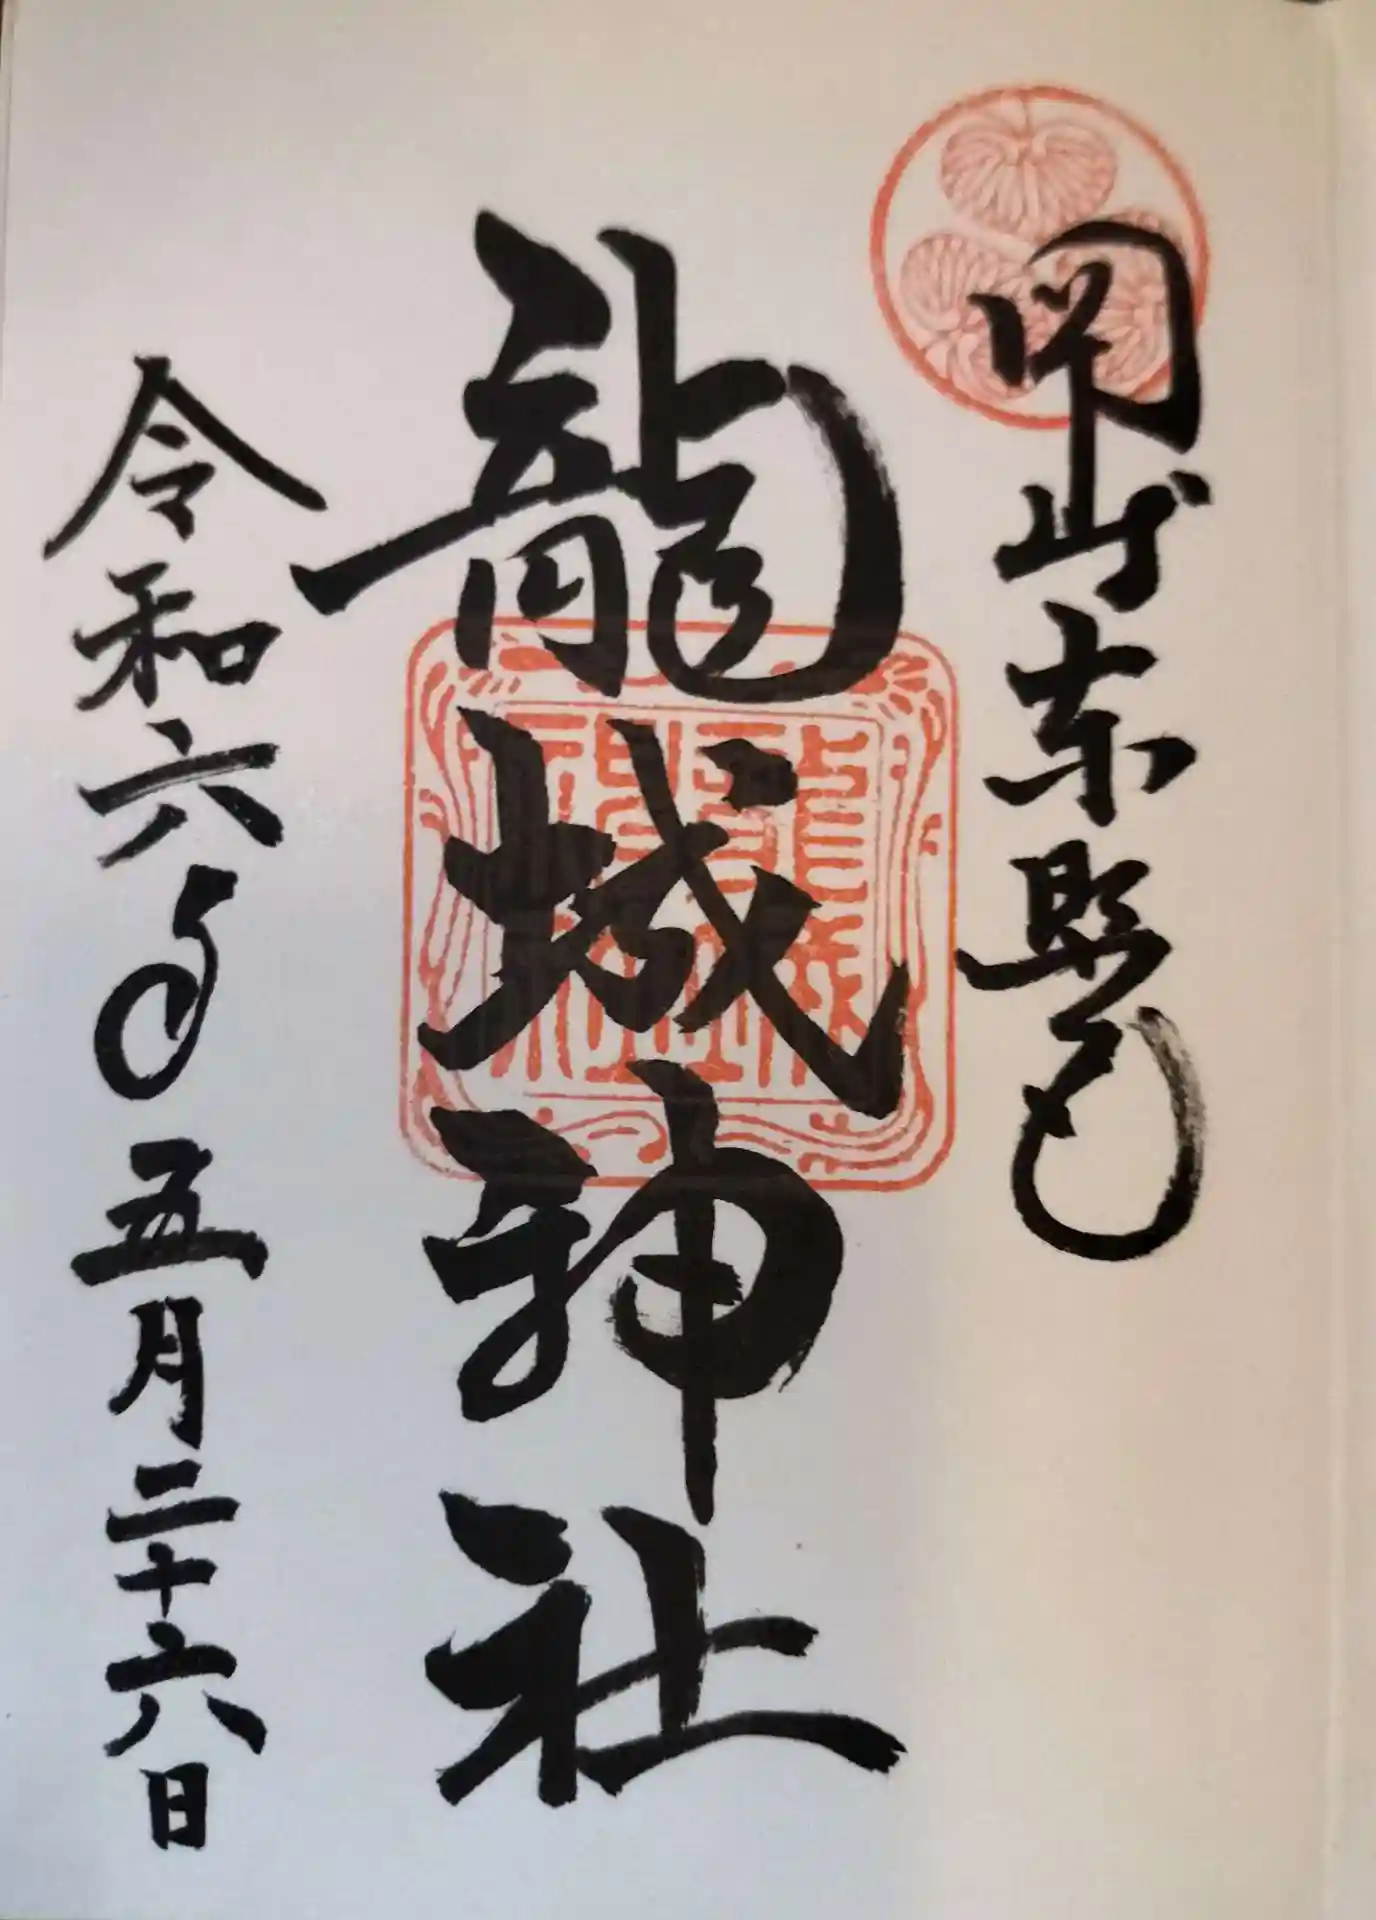 岡崎東照宮
龍城神社
令和六年五月二十六日